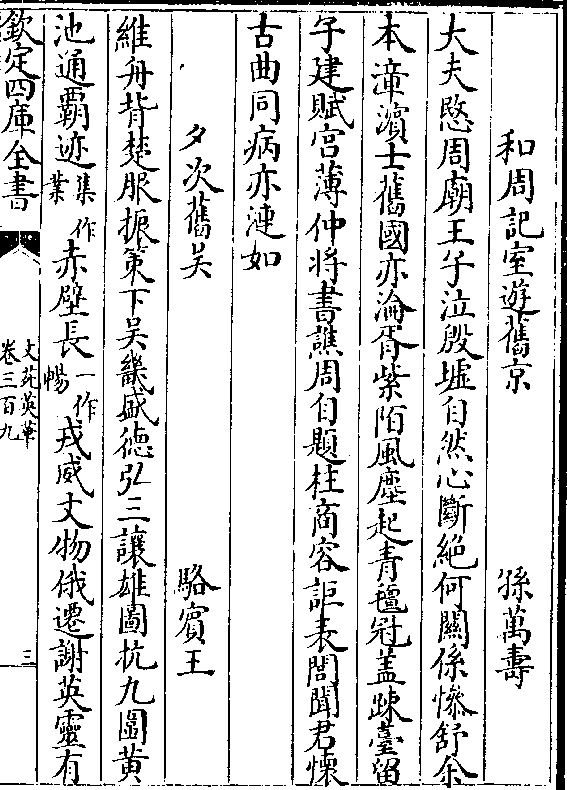 和周記室遊舊京　孫萬壽
大夫愍周廟王子泣殷墟自然心斷絶何關係慘舒余
本漳濱士舊國亦淪胥紫陌風塵起青氊冠盖踈臺留
子建賦宫薄仲将書譙周自題柱商容詎表閭聞君懐
古曲同病亦漣如
夕次舊吴　駱賓王
維舟背楚服振策下吴畿盛徳弘三讓雄圖抗九圍黄
池通覇迹集作業赤壁長一作暢戎威文物俄遷謝英靈有
欽定四庫全書
文苑英華
卷三百九
三